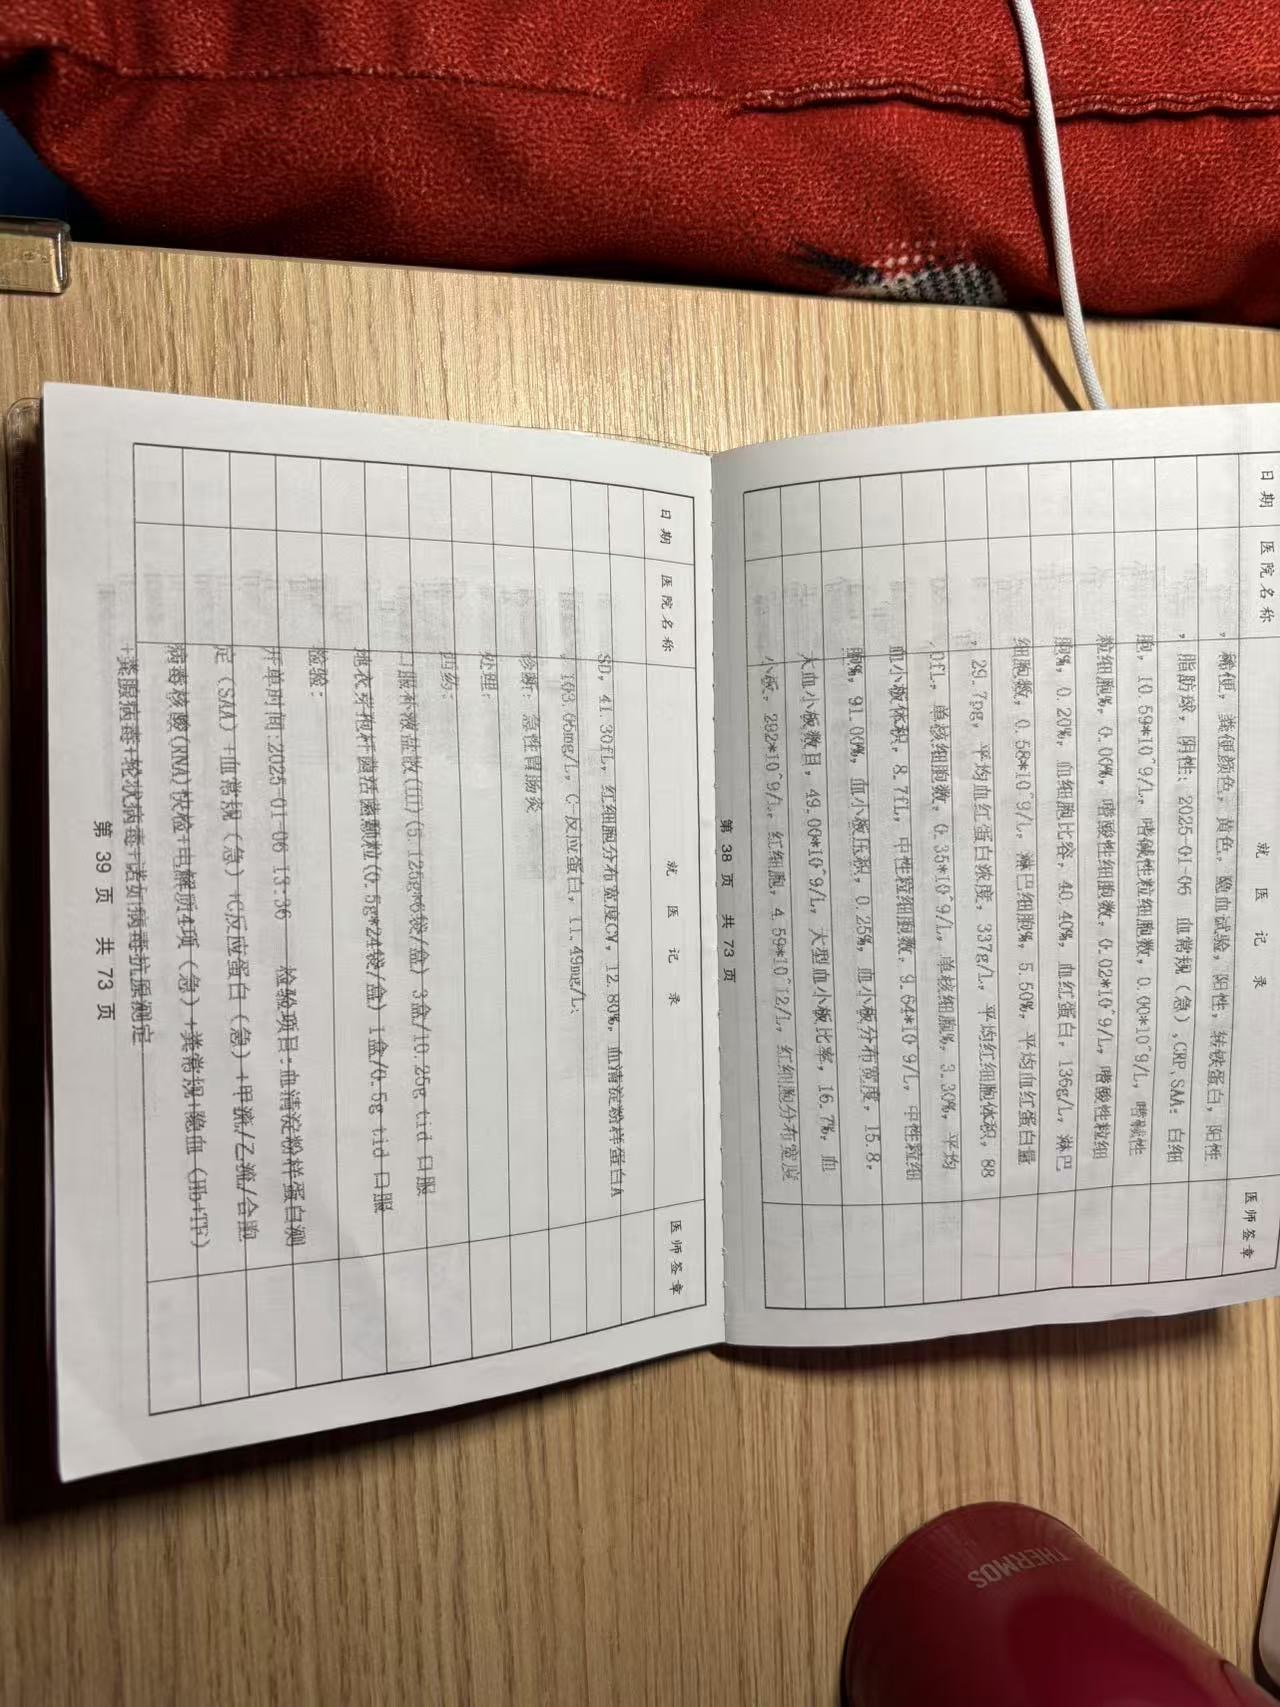 日期 医院名称 就医记录 医师签章
，稀便，粪便颜色，黄色，隐血试验，阳性，转铁蛋白，阳性
，脂肪球，阴性；2025-01-06 血常规（急）,CRP,SAA：白细
胞，10.59*10^9/L，嗜碱性粒细胞数，0.00*10^9/L，嗜碱性
粒细胞%，0.00%，嗜酸性细胞数，0.02*10^9/L，嗜酸性粒细
胞%，0.20%，血细胞比容，40.40%，血红蛋白，136g/L，淋巴
细胞数，0.58*10^9/L，淋巴细胞%，5.50%，平均血红蛋白量
，29.7pg，平均血红蛋白浓度，337g/L，平均红细胞体积，88
.0fL，单核细胞数，0.35*10^9/L，单核细胞%，3.30%，平均
血小板体积，8.7fL，中性粒细胞数，9.64*10^9/L，中性粒细
胞%，91.00%，血小板压积，0.25%，血小板分布宽度，15.8，
大血小板数目，49.00*10^9/L，大型血小板比率，16.7%，血
小板，292*10^9/L，红细胞，4.59*10^12/L，红细胞分布宽度
第 38 页 共 73 页
日期 医院名称 就医记录 医师签章
SD，41.30fL，红细胞分布宽度CV，12.80%，血清淀粉样蛋白A
，103.65mg/L，C-反应蛋白，11.49mg/L；
诊断：急性胃肠炎
处理：
西药：
口服补液盐散(III)(5.125g*6袋/盒) 3盒/10.25g tid 口服
地衣芽孢杆菌活菌颗粒(0.5g*24袋/盒) 1盒/0.5g tid 口服
检验：
开单时间:2025-01-06 13:36 检验项目:血清淀粉样蛋白测
定（SAA）+血常规（急）+C反应蛋白（急）+甲流/乙流/合胞
病毒核酸(RNA)快检+电解质4项（急）+粪常规+隐血（Hb+TF）
+粪腺病毒+轮状病毒+诺如病毒抗原测定
第 39 页 共 73 页
THERMOS